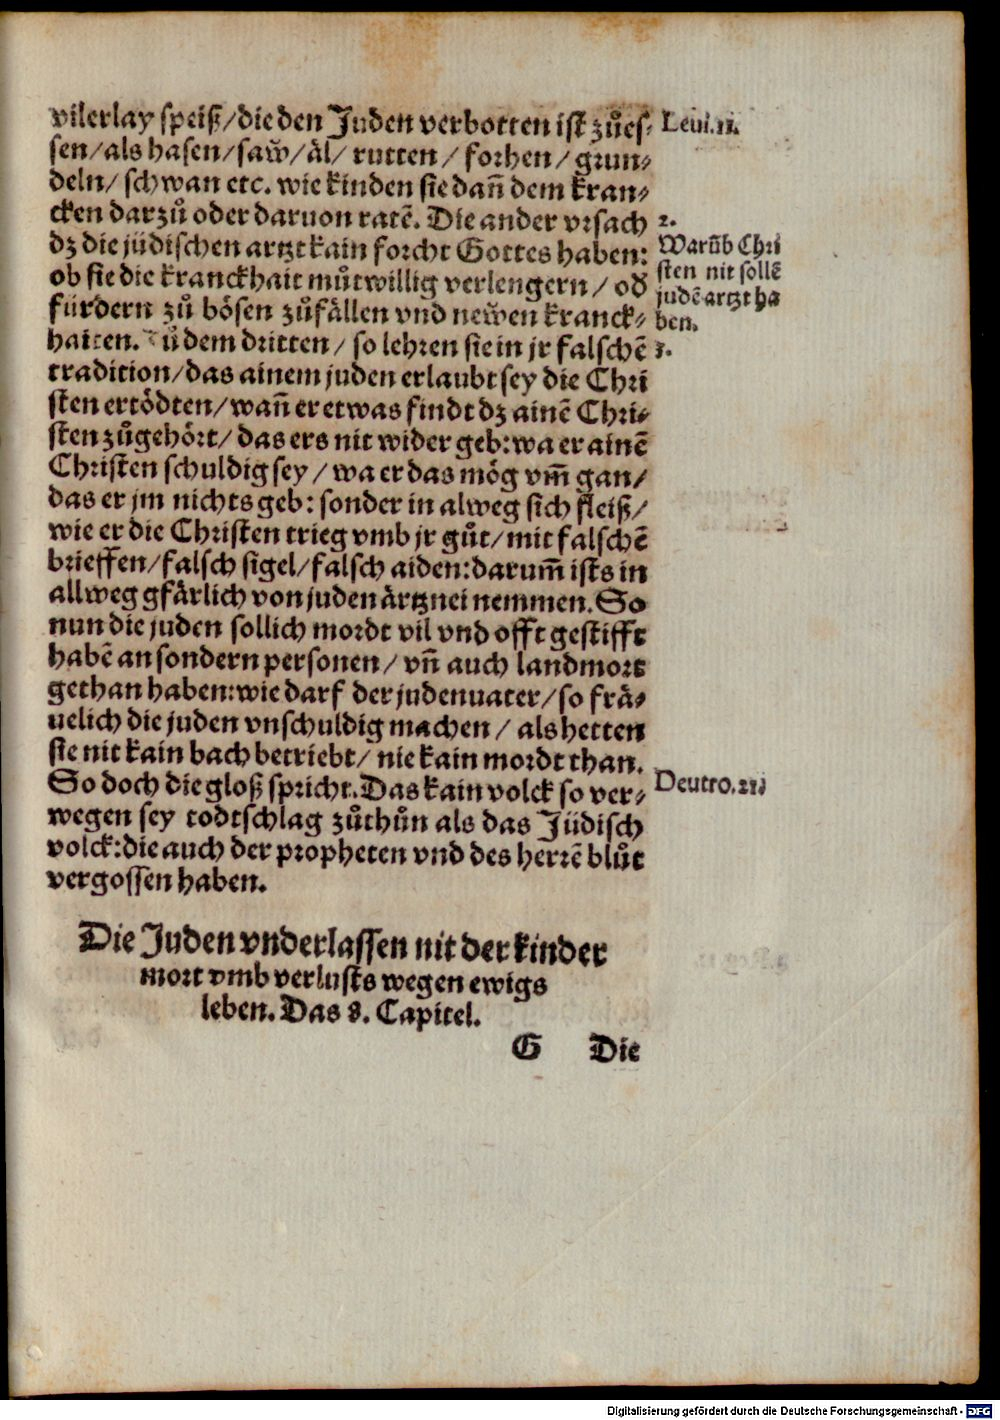 vilerlay speiß/die den Juden verbotten ist zůes-
sen/als hasen/saw̆/äl/ rutten / forhen / grun-
deln/ schwan etc. wie kinden sie dañ dem kran-
cken darzů oder daruon ratē. Die ander vrsach
dz die jüdischen artzt kain forcht Gottes haben:
ob sie die kranckhait můtwillig verlengern / od̄
fürdern zů bösen zůfällen vnd new̆en kranck-
haiten. ů dem dritten / so lehren sie in jr falschē
tradition/das ainem juden erlaubt sey die Chri
sten ertödten/wañ er etwas findt dz ainē Chri-
sten zůgehört/ das ers nit wider geb: wa er ainē
Christen schuldig sey / wa er das mög vm̄ gan/
das er jm nichts geb: sonder in alweg sich fleiß/
wie er die Christen trieg vmb jr gůt/mit falschē
brieffen/falsch sigel/falsch aiden: darum̄ ists in
allweg gfärlich von juden ärtznei nemmen. So
nun die juden sollich mordt vil vnd offt gestifft
habē an sondern personen / vñ auch landmort
gethan haben: wie darf der judenuater/so frä-
uelich die juden vnschuldig machen / als hetten
sie nit kain bach betriebt/ nie kain mordt than.
So doch die gloß spricht. Das kain volck so ver-
wegen sey todtschlag zůthůn als das Jüdisch
volck: die auch der propheten vnd des herrē blůt
vergossen haben.
Leui.11.
2.
Warūb Chri
sten nit sollē
judē artzt ha
ben.
3.
Deutro.
Die Juden vnderlassen nit der kinder
mort vmb verlusts wegen ewigs
leben. Das 8. Capitel.
G Die
Digitalisierung gefördert durch die Deutsche Forschungsgemeinschaft - DFG